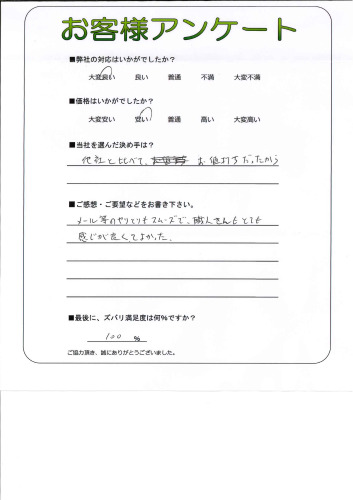 お客様アンケート
■弊社の対応はいかがでしたか?
大変良い 良い 普通 不満 大変不満
■価格はいかがでしたか?
大変安い 安い 普通 高い 大変高い
■当社を選んだ決め手は?
他社と比べて、 お値打ちだったから
■ご感想・ご要望などをお書き下さい。
メール等のやりとりもスムーズで、職人さんもとても
感じが良くてよかった。
■最後に、ズバリ満足度は何%ですか?
100 %
ご協力頂き、誠にありがとうございました。